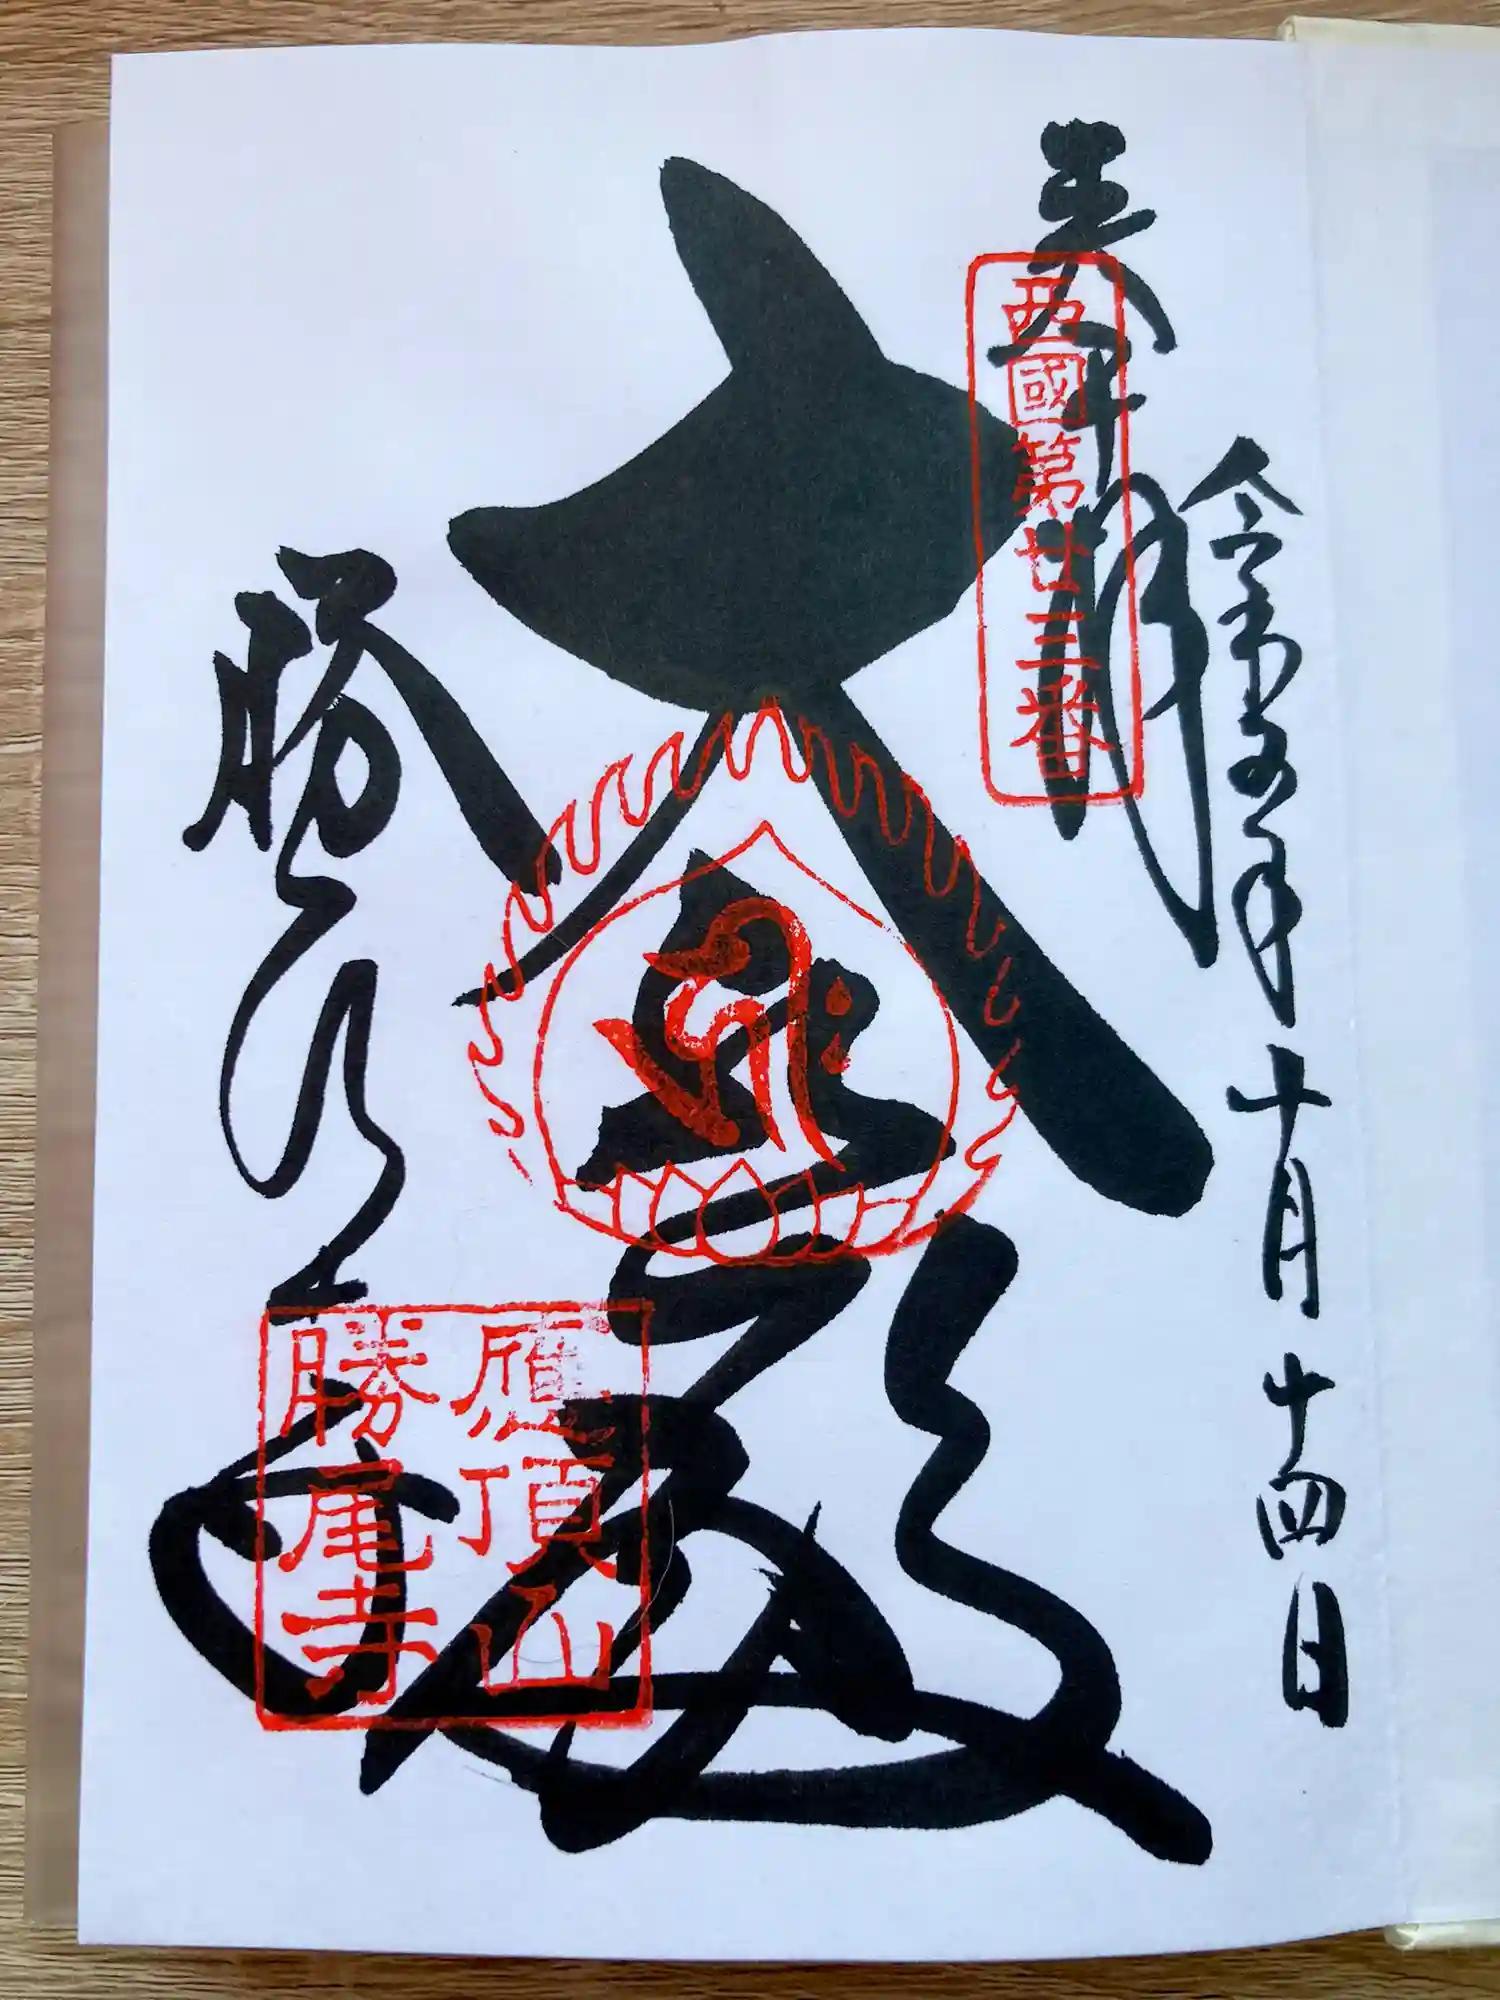 令和五年十月十四日
奉拝
西國第廿三番
大悲殿
應頂山
勝尾寺
勝尾寺